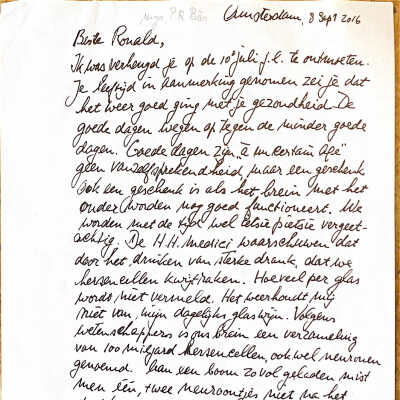 Amsterdam, 8 Sept 2016
Beste Ronald,
Ik was verheugd je op de 10e juli j.l. te ontmoeten.
Je leeftijd in aanmerking genomen zei je dat
het weer goed ging met je gezondheid. De
goede dagen wegen op tegen de minder goede
dagen. Goede dagen zijn "à un certain age"
geen vanzelfsprekendheid maar een geschenk
ook een geschenk is als het brein met het
ouder worden nog goed functioneert. We
worden met de tijd wel ietsie pietsie vergeet-
achtig. De H.H. medici waarschuwen dat
door het drinken van sterke drank, dat we
hersencellen kwijtraken. Hoeveel per glas
words niet vermeld. Het weerhoudt mij
niet van mijn dagelijks glas wijn. Volgens
wetenschappers is ons brein een verzameling
van 100 miljard hersencellen, ook wel neuronen
genoemd. Aan een boom zo vol geladen mist
men één, twee neuroontjes niet na het